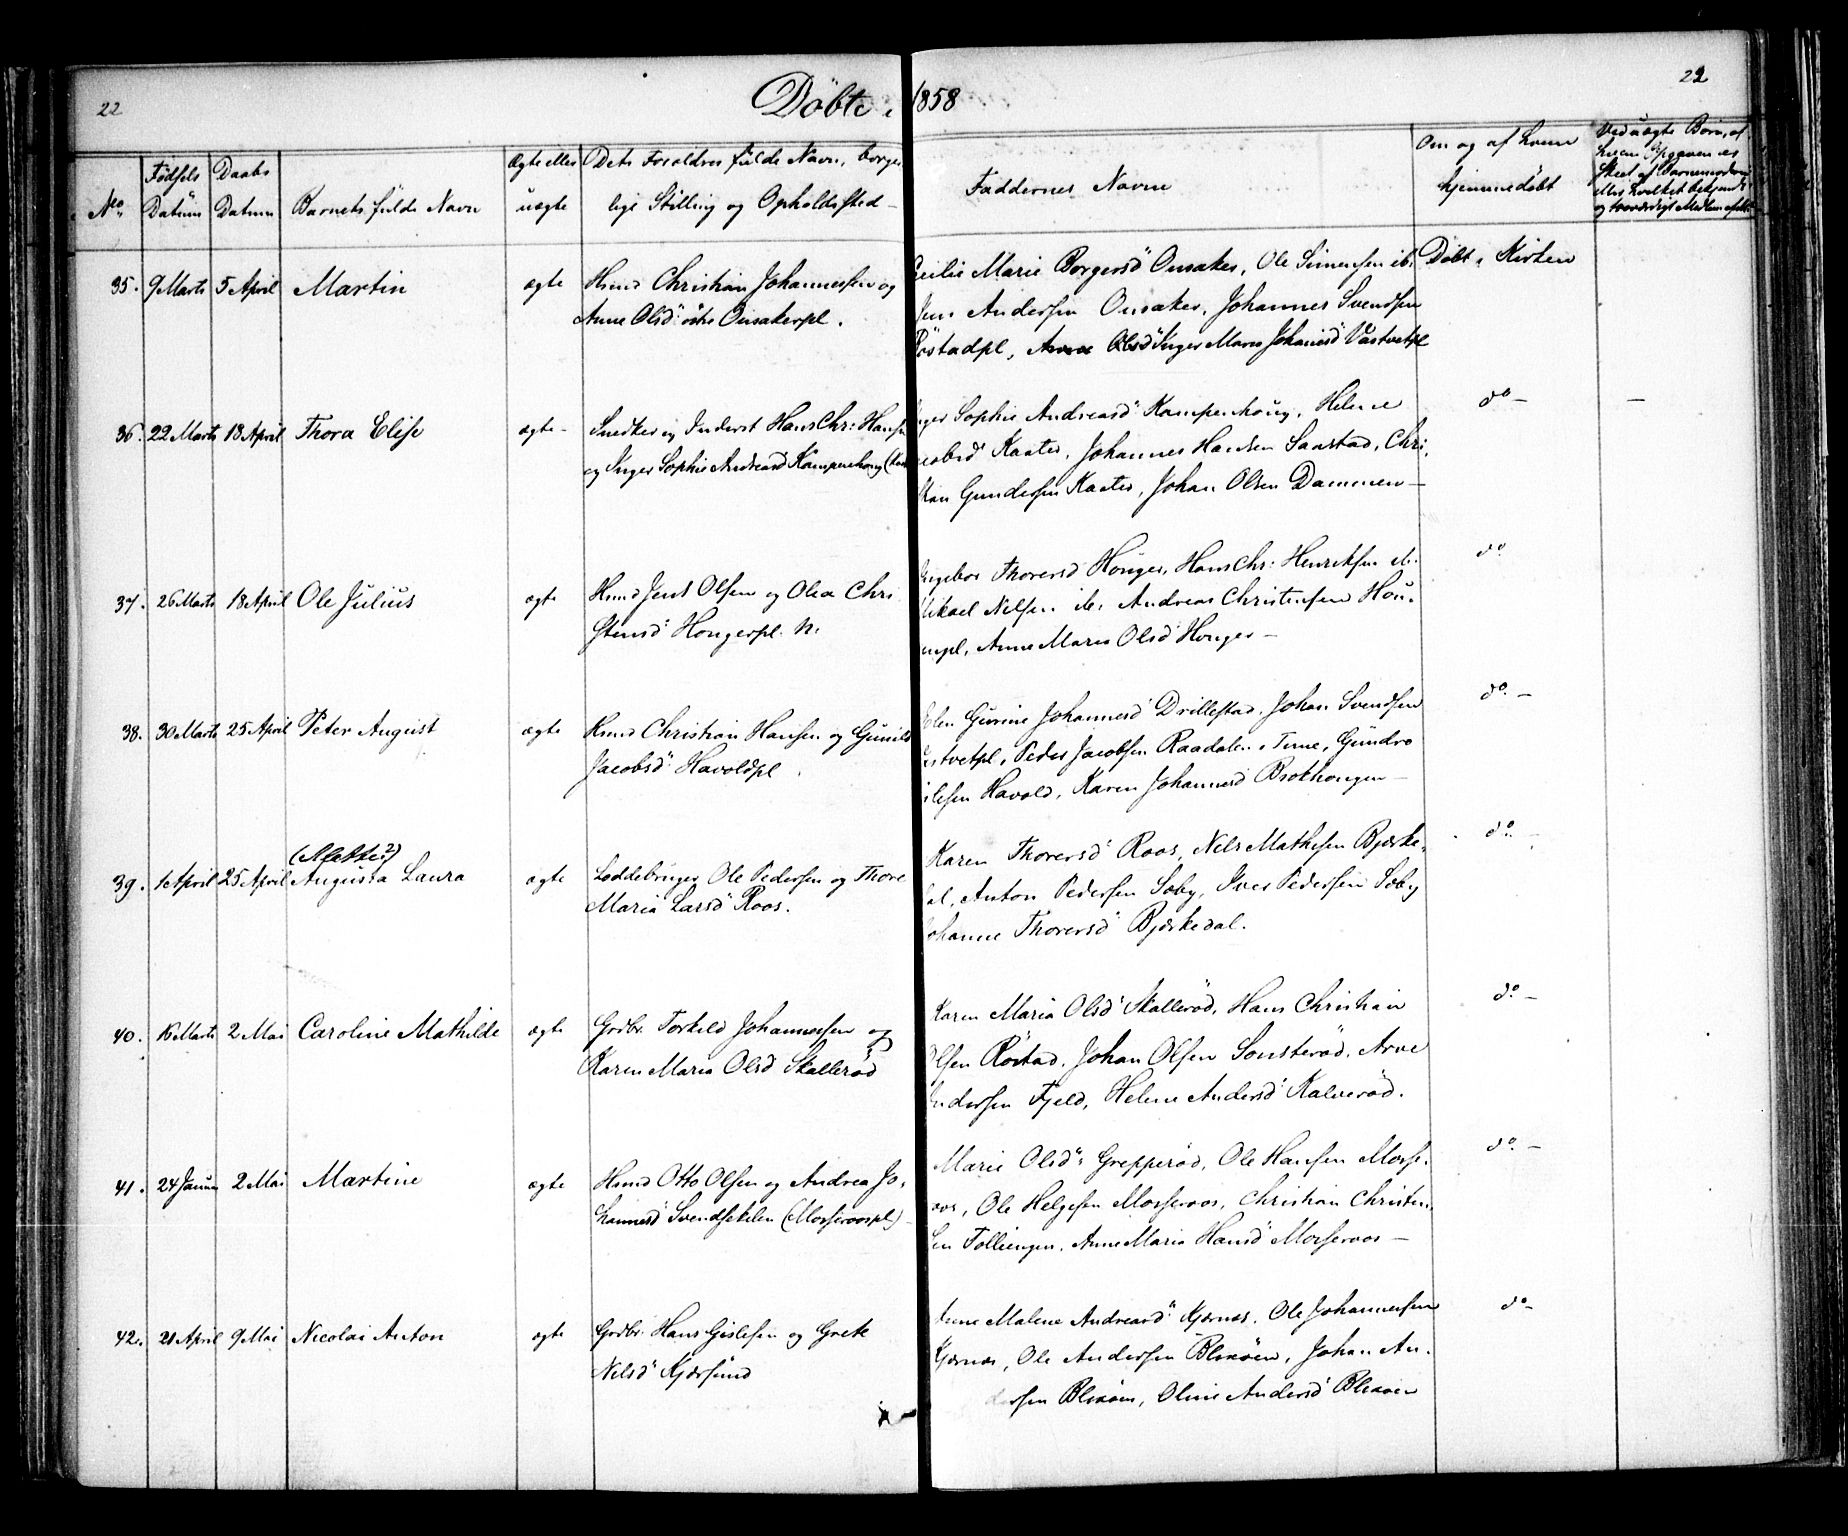 22
Döbte i 1858
22
No
Födsels Datum
Daabs Datum
Barnets fulde Navn
Ægte eller uægte
Dets Forældres fulde Navn, borgerlige Stilling og Opholdssted
Faddernes Navne
Om og af hvem hjemmedöbt
Ved uægte Börn, af hvem Opgaven er skeet af Barnemoderen eller hvilket bekjendt og troværdigt Medlem
35. 9 Marts 5 April Martin ægte Hsmd Christian Johannessen og
Anne Olsd. östre Onsakerpl.
Marie Borgersd Onsaker, Ole Simensen ib.
Andersen Onsaker, Johannes Svendsen
Röstadpl, Anne Olsd Inger Maria Johansd Vastvetpl
Döbt i Kirken
36. 22 Marts 18 April Thora Elise ægte- Snedker og Inderst Hans Chr: Hansen
og Inger Sophie Andreasd Kampenhoug
Inger Sophie Andreasd Kampenhoug, Helene
Jacobsd Kaater, Johannes Hansen Saastad, Chri,
stian Gundersen Kaater, Johan Olsen Dammen-
do - -
37. 26 Marts 18 April Ole Julius ægte Hsmd Jens Olsen og Olea Chri
stensd Hougerpl. N.
Ingebor Thorersd Houger, Hans Chr: Henriksen ib.
Mikael Nilsen ib. Andreas Christensen Hou-
gerpl, Anne Maria Olsd Houger-
do
38. 30 Marts 25 April Peter August ægte Hsmd Christian Hansen og Gunild
Jacobsd Havoldpl
Elen Gurine Johannesd Drillestad, Johan Svendsen
Vestvetpl, Peder Jacobsen Raadalen i Tune, Gundro
Havold, Karen Johannesd Brokhougen-
do -
39. 1 April 25 April (Mathea?) Augusta Laura ægte Loddebruger Ole Pedersen og Thore
Maria Larsd Roos.
Karen Thorersd Roos, Nils Mathisen Bjørke-
dal, Anton Pedersen Soby, Iver Pedersen Soby
Johanne Thorersd Bjørkedal.
do -
40. 16 Marts 2 Mai Caroline Mathilde ægte Grdbr. Torkild Johannessen og
Karen Maria Olsd Skalleröd
Karen Maria Olsd Skalleröd, Hans Christian
Olsen Röstad, Johan Olsen Sonsteröd, Arne
Andersen Fjeld, Helene Andersd Kalveröd.
do -
41. 24 Januar 2 Mai Martine ægte Hsmd Otto Olsen og Andrea Jo,
hannesd Svendsekilen (Morseroospl.)
Marie Olsd Grepperöd, Ole Hansen Morse-
roos, Ole Helgesen Morseroos, Christian Christen,
sen Follengen, Anne Maria Hansd Morseroos-
do -
42. 21 April 9 Mai Nicolai Anton ægte Grdbr. Hans Gislesen og Grete
Nilsd Kjærsund
Anne Malene Andreasd Kjærnes, Ole Johannessen
Kjærnes, Ole Andersen Blixöen, Johan An-
dersen Blixöen, Oline Andersd Blixöen
do -